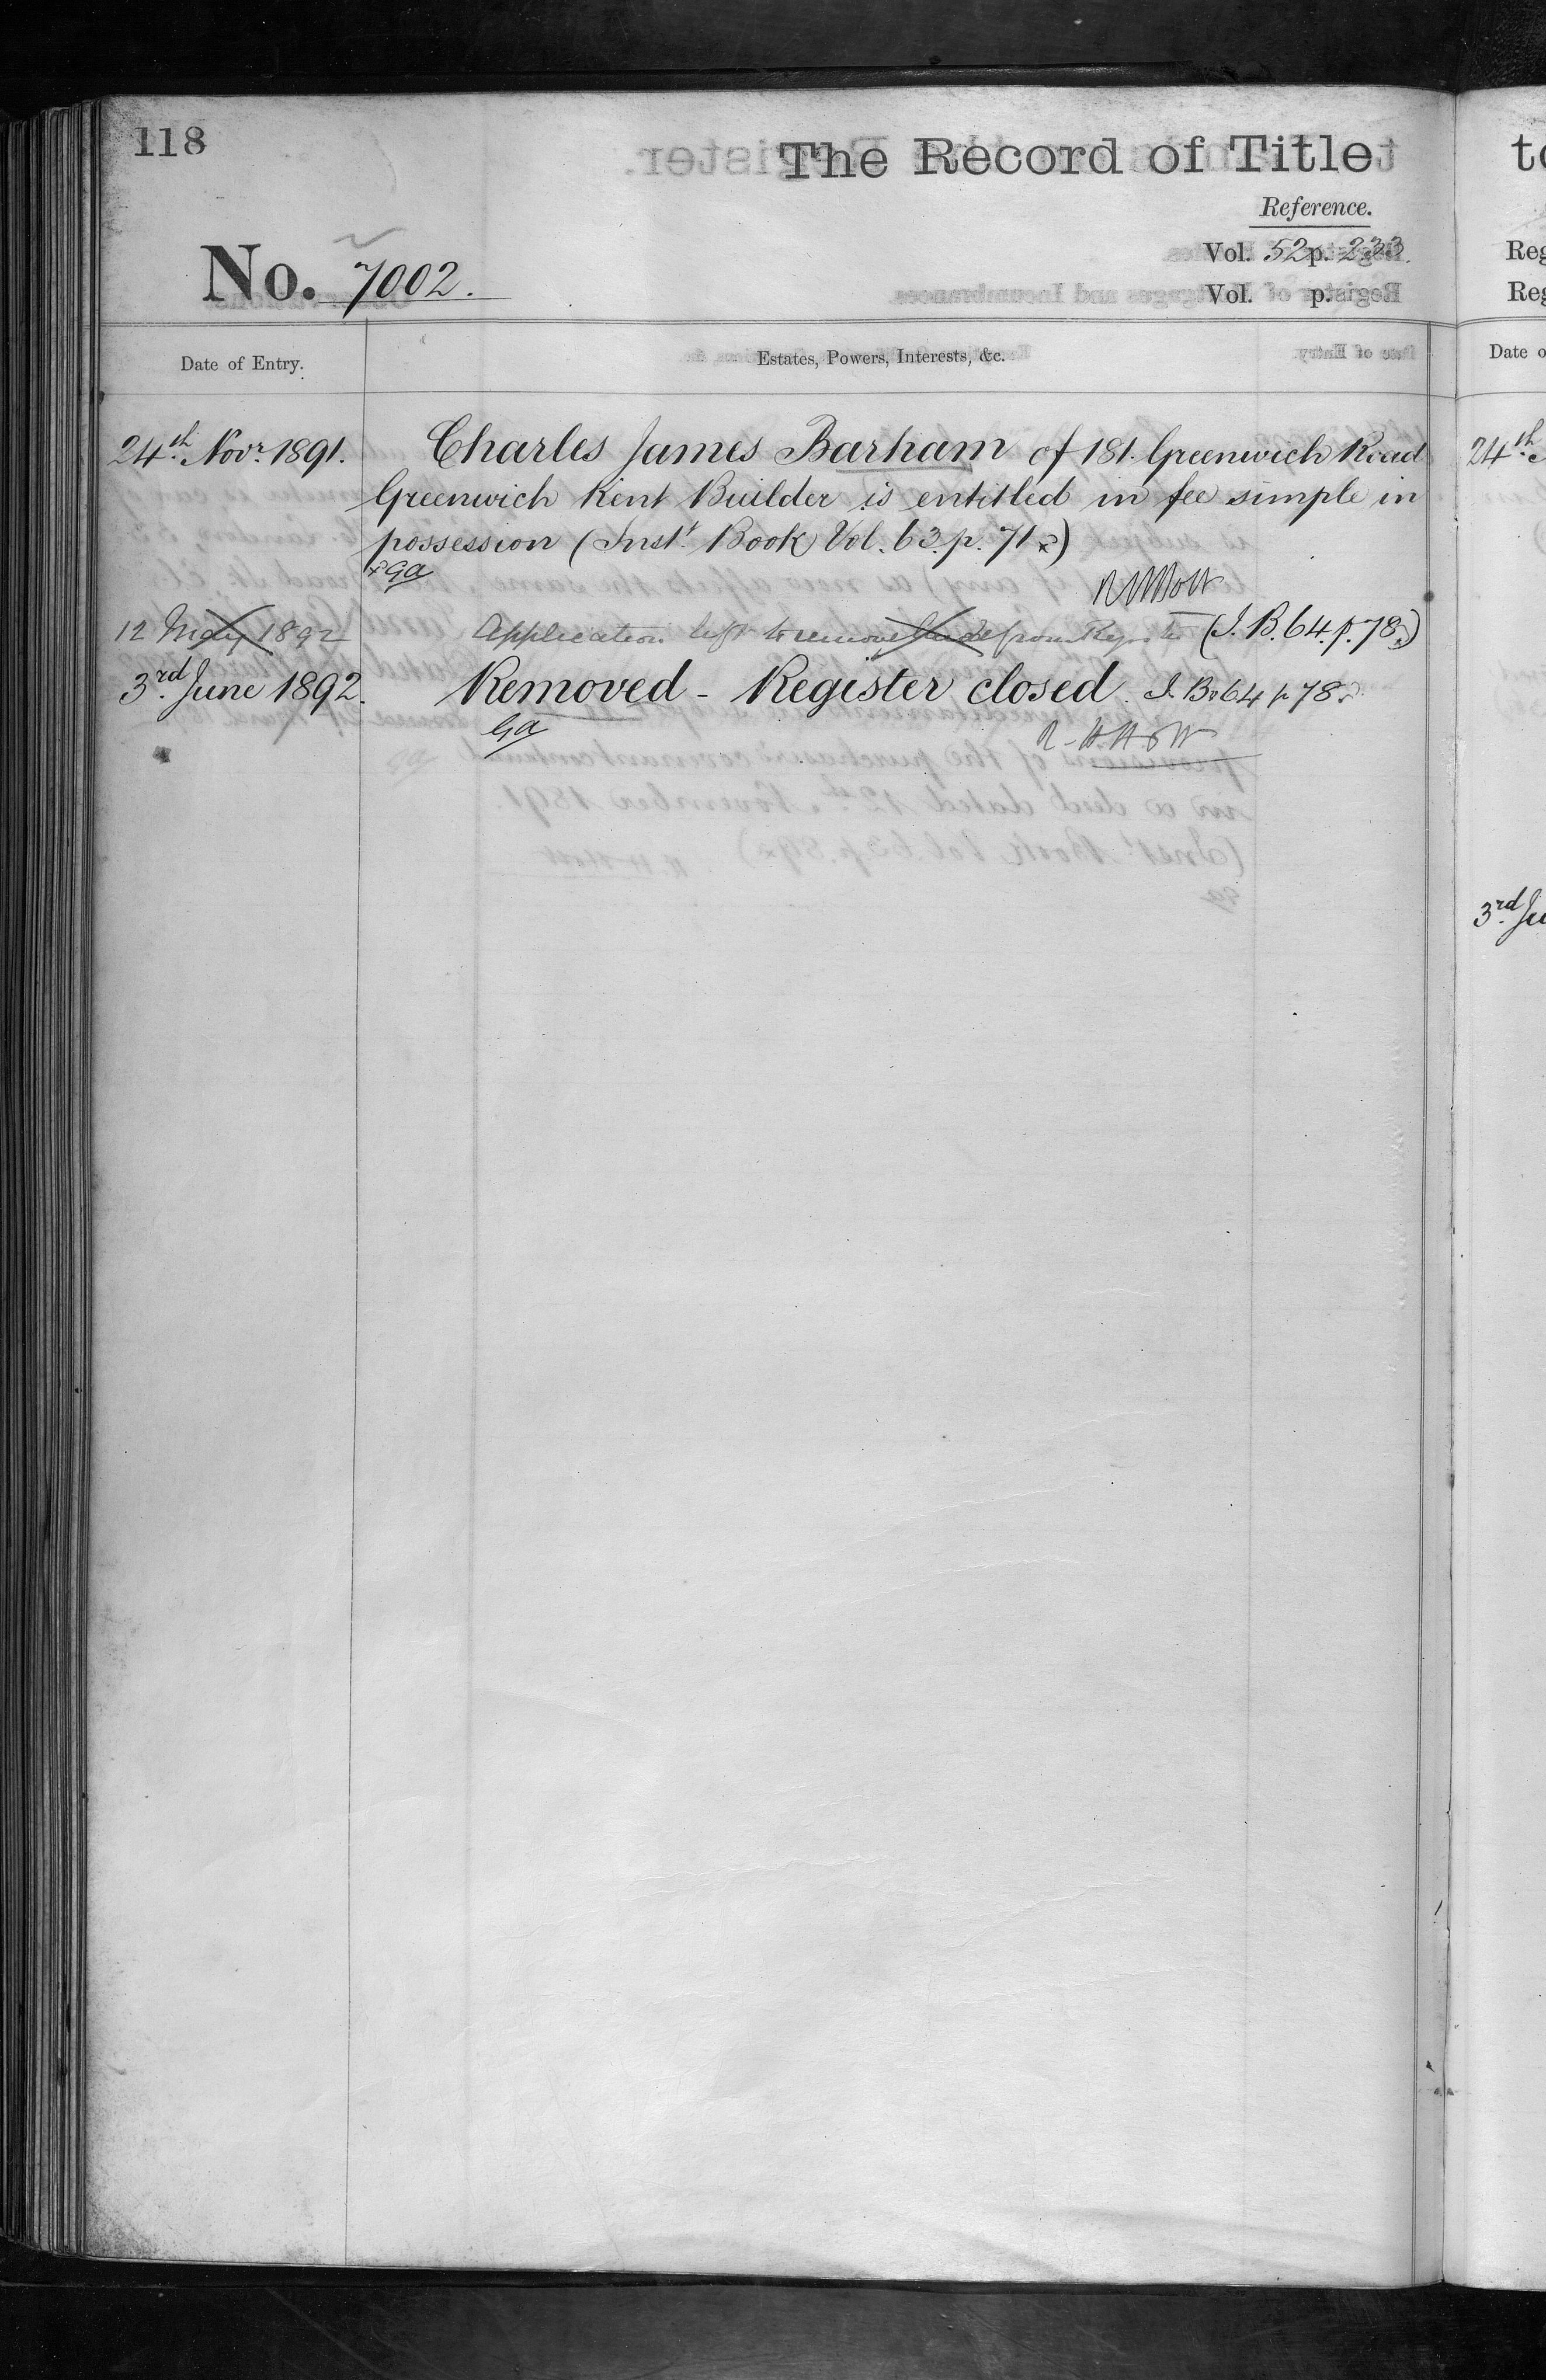 118
The Record of Title
Reference.
Vol. 52 p. 233.
Vol. p.
No. 7002.
Date of Entry.
Estates, Powers, Interests, &c.
24th Novr. 1891.
Charles James Barham of 181. Greenwich Road
Greenwich Kent Builder is entitled in fee simple in
possession (Inst. Book Vol. 63. p. 71
12 May 1892
Application left to remove from Register (I. B. 64. p. 78.)
3rd June 1892.
Removed - Register closed. I. B. 64 p 78
to
Reg
Reg
Date o
24th
3rd Ju